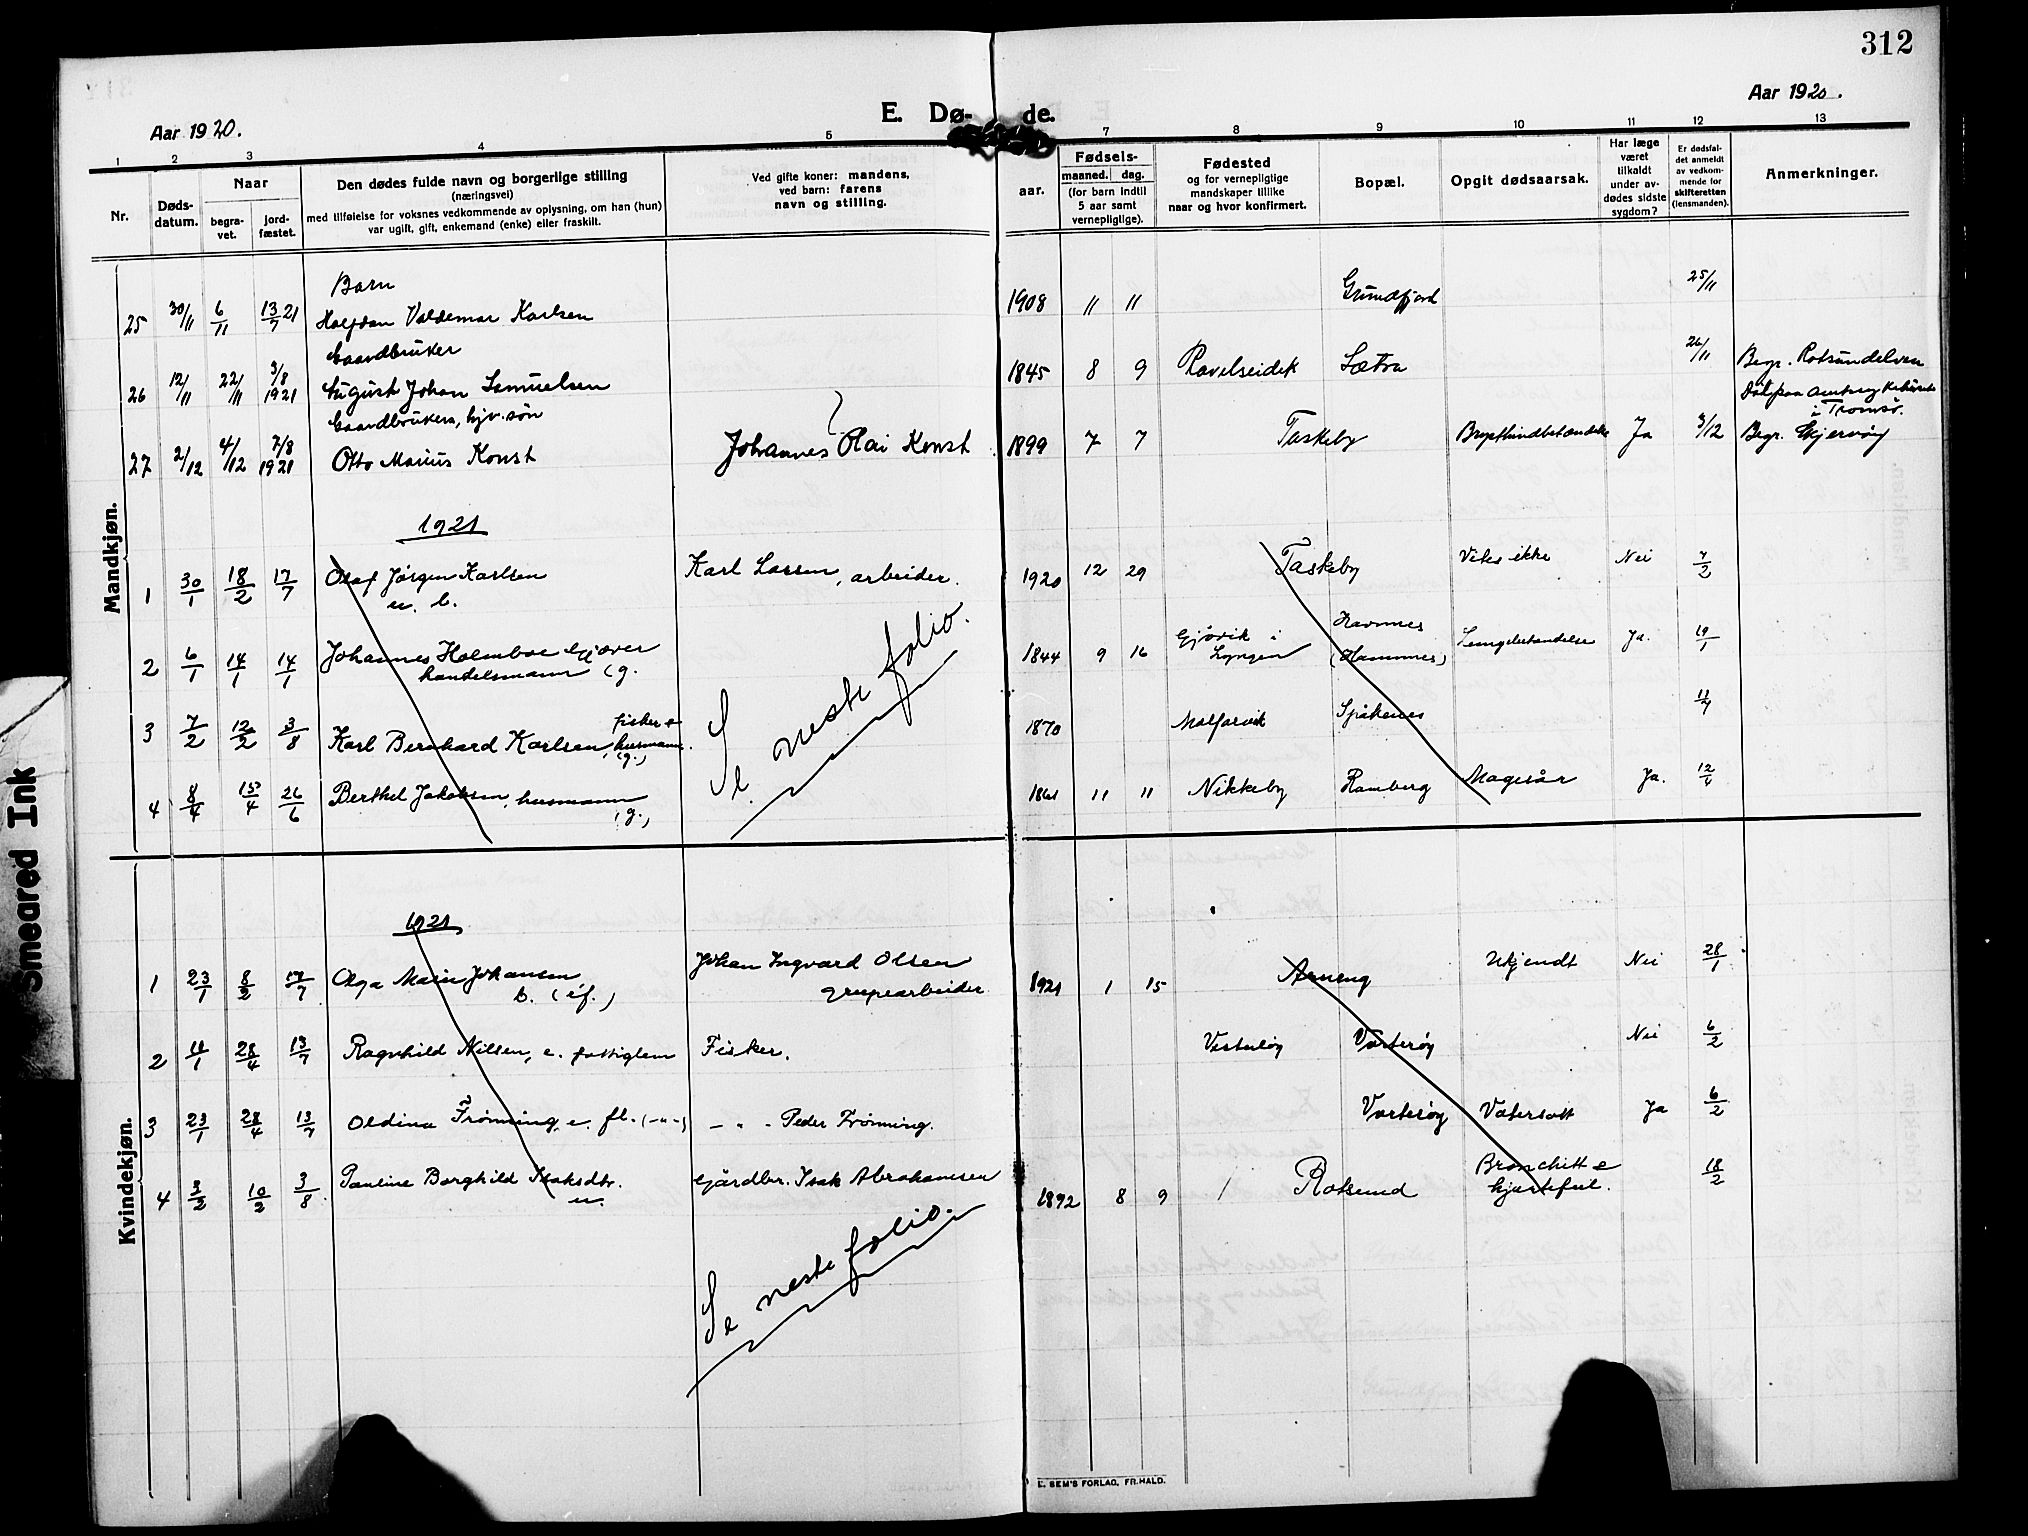 312
Aar 1920.
E. Dø- de.
Aar 1920.
1 2 3 4 5 7 8 9 10 11 12 13
Nr.
Døds-
datum.
Naar
begra-
vet.
jord-
fæstet.
Den dødes fulde navn og borgerlige stilling
(næringsvei)
med tilføielse for voksnes vedkommende av oplysning, om han (hun)
var ugift, gift, enkemand (enke) eller fraskilt.
Ved gifte koner: mandens,
ved barn: farens
navn og stilling.
aar.
Fødsels-
maaned. dag.
(for barn indtil
5 aar samt
vernepligtige).
Fødested
og for vernepligtige
mandskaper tillike
naar og hvor konfirmert.
Bopæl.
Opgit dødsaarsak.
Har læge
været
tilkaldt
under av-
dødes sidste
sygdom?
Er dødsfal-
det anmeldt
av vedkom-
mende for
skifteretten
(lensmanden).
Anmerkninger.
Mandkjøn.
Barn
25 30/11 6/11 13/7 21 Halfdan Valdemar Karlsen 1908 11 11 Grundfjord 25/11
Gaardbruker
26 12/11 22/11 3/8 1921 August Johan Samuelsen 1845 8 9 Ravelseidet Sætra 26/11 Begr. Rotsundelven
Gaardbrukers, hjv. søn
Død paa Amtssykehuset
i Tromsø.
27 2/12 4/12 7/8 1921 Otto Marius Konst Johannes Olai Konst 1899 7 7 Taskeby Brysthindbetændelse Ja 3/12 Begr. Skjervøy
1921
1 30/1 18/2 17/7 Olaf Jørgen Karlsen Karl Larsen, arbeider. 1920 12 29 Taskeby Vites ikke Nei 7/2
u. b.
2 6/1 14/1 14/1 Johannes Holmboe Giæver 1844 9 16 Gjøvik i Lyngen Havnnes (Hamnnes) Lungebetændelse Ja. 19/1
handelsmann (g.
3 7/2 12/2 3/8 Karl Bernhard Karlsen, fisker o husmann. (g.) 1870 Malfarvik Spåkenes
4 8/4 15/4 26/6 Berthel Jakobsen, husmann (g.) 1861 11 11 Nikkeby Ramberg Magesår Ja. 12/4
Se neste folio.
Kvindekjøn.
1921
1 23/1 8/2 17/7 Olga Marie Johansen Johan Ingvard Olsen 1921 1 15 Arneng Ukjendt Nei 28/1
b. (èf.) grupearbeider
2 11/1 28/4 13/7 Ragnhild Nilsen, e. fattiglem Fisker. Vesterøy Vorterøy Nei 6/2
3 23/1 28/4 13/7 Oldina Frønning, e. fl. (-"-) - " - Peder Frønning. Vorterøy Vatersott Ja 6/2
4 3/2 10/2 3/8 Pauline Borghild Isaksdtr. Gårdbr. Isak Abrahamsen 1892 8 9 / Rotsund Bronchitt o hjertefeil. 18/2
u.
Se neste folio.
E. SEM'S FORLAG, FR.HALD.
Smeared Ink